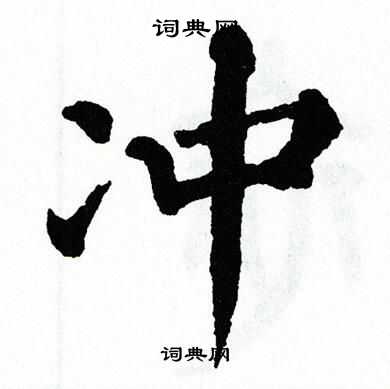 词典网
冲
词典网